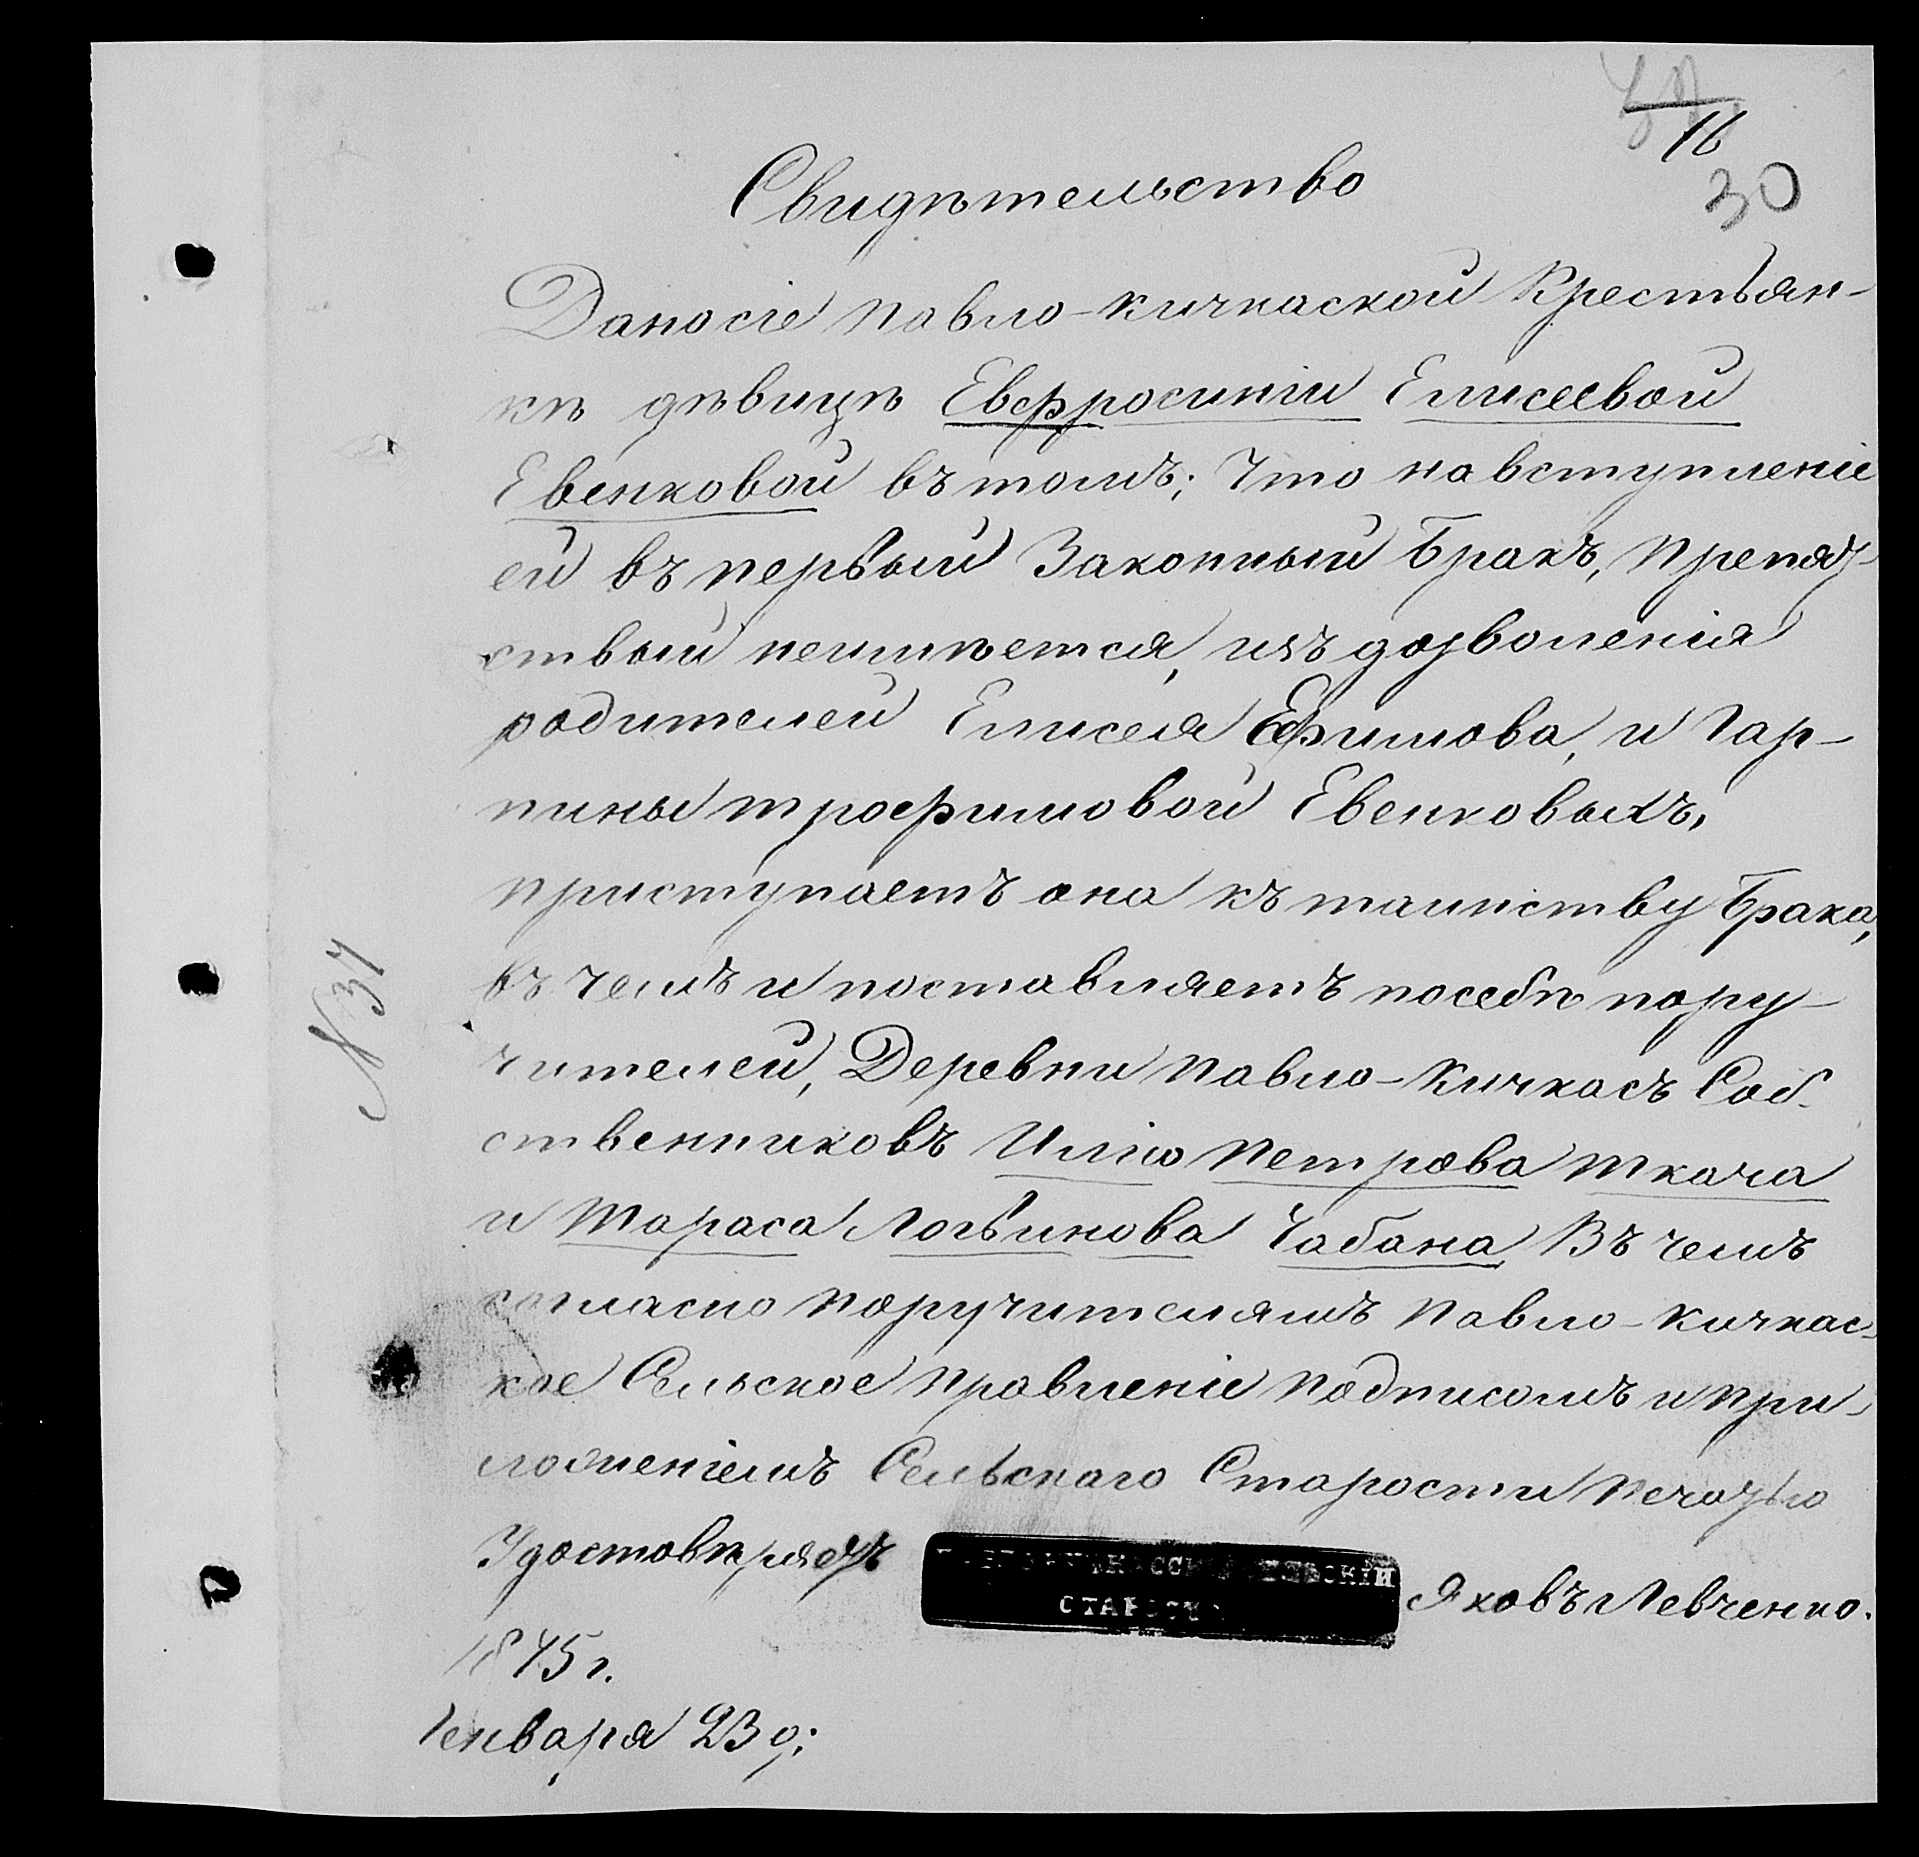 16
30
Свидѣтельство
Даносіе Павло-Кичкаской Крестьян-
кѣ дѣвицѣ Евфросиніи Елисеевой
Евенковой въ томъ; Что на вступленіе
ей въ первый Законный Бракъ, Препят-
ствый неимѣется, изъ дозволенія
родителей Елисея Ефимова, и Гар-
пины трофимовой Евенковыхъ,
приступаетъ она къ таинству Брака,
въ чемъ и поставляетъ посебѣ пору-
чителей, Деревни Павло-Кичкасъ Соб-
ственниковъ Илію Петрова Ткача
и Тараса Логвинова Чабана Въ чемъ
согласно Поручителямъ Павло-Кичкас-
кое Сельское Правленіе Подписомъ и при-
ложеніемъ Сельскаго Старосты Печатью
Удостовѣряетъ
СТАРОСТА
Яковъ Левченко.
1875 г.
Генваря 23 д;
N 37